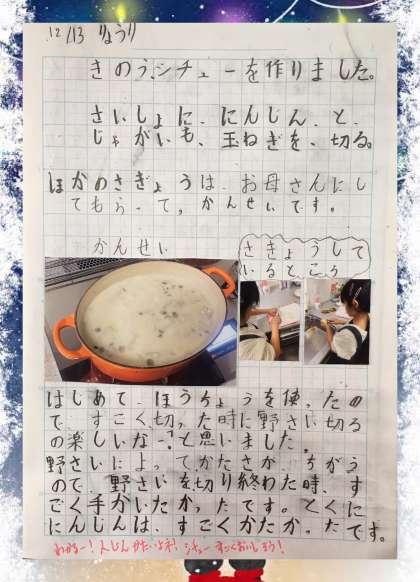 12/13 りょうり
きのう、シチューを作りました。
さいしょに、にんじん、と、
じゃがいも、玉ねぎを、切る。
ほかのさぎょうは、お母さんにし
てもらって、かんせいです。
かんせい
さぎょうして
いるところ
はじめて、ほうちょうを使ったの
で、すごく切った時に野さい切る
の楽しいな〜?と思いました。
野さいによってかたさが、ちがう
ので、野さいを切り終わた時、す
ごく手がいたかったです。とくに
にんじんは、すごくかたかったです。
わかるー!人じんかたいよね!シチューすごくおいしそう!